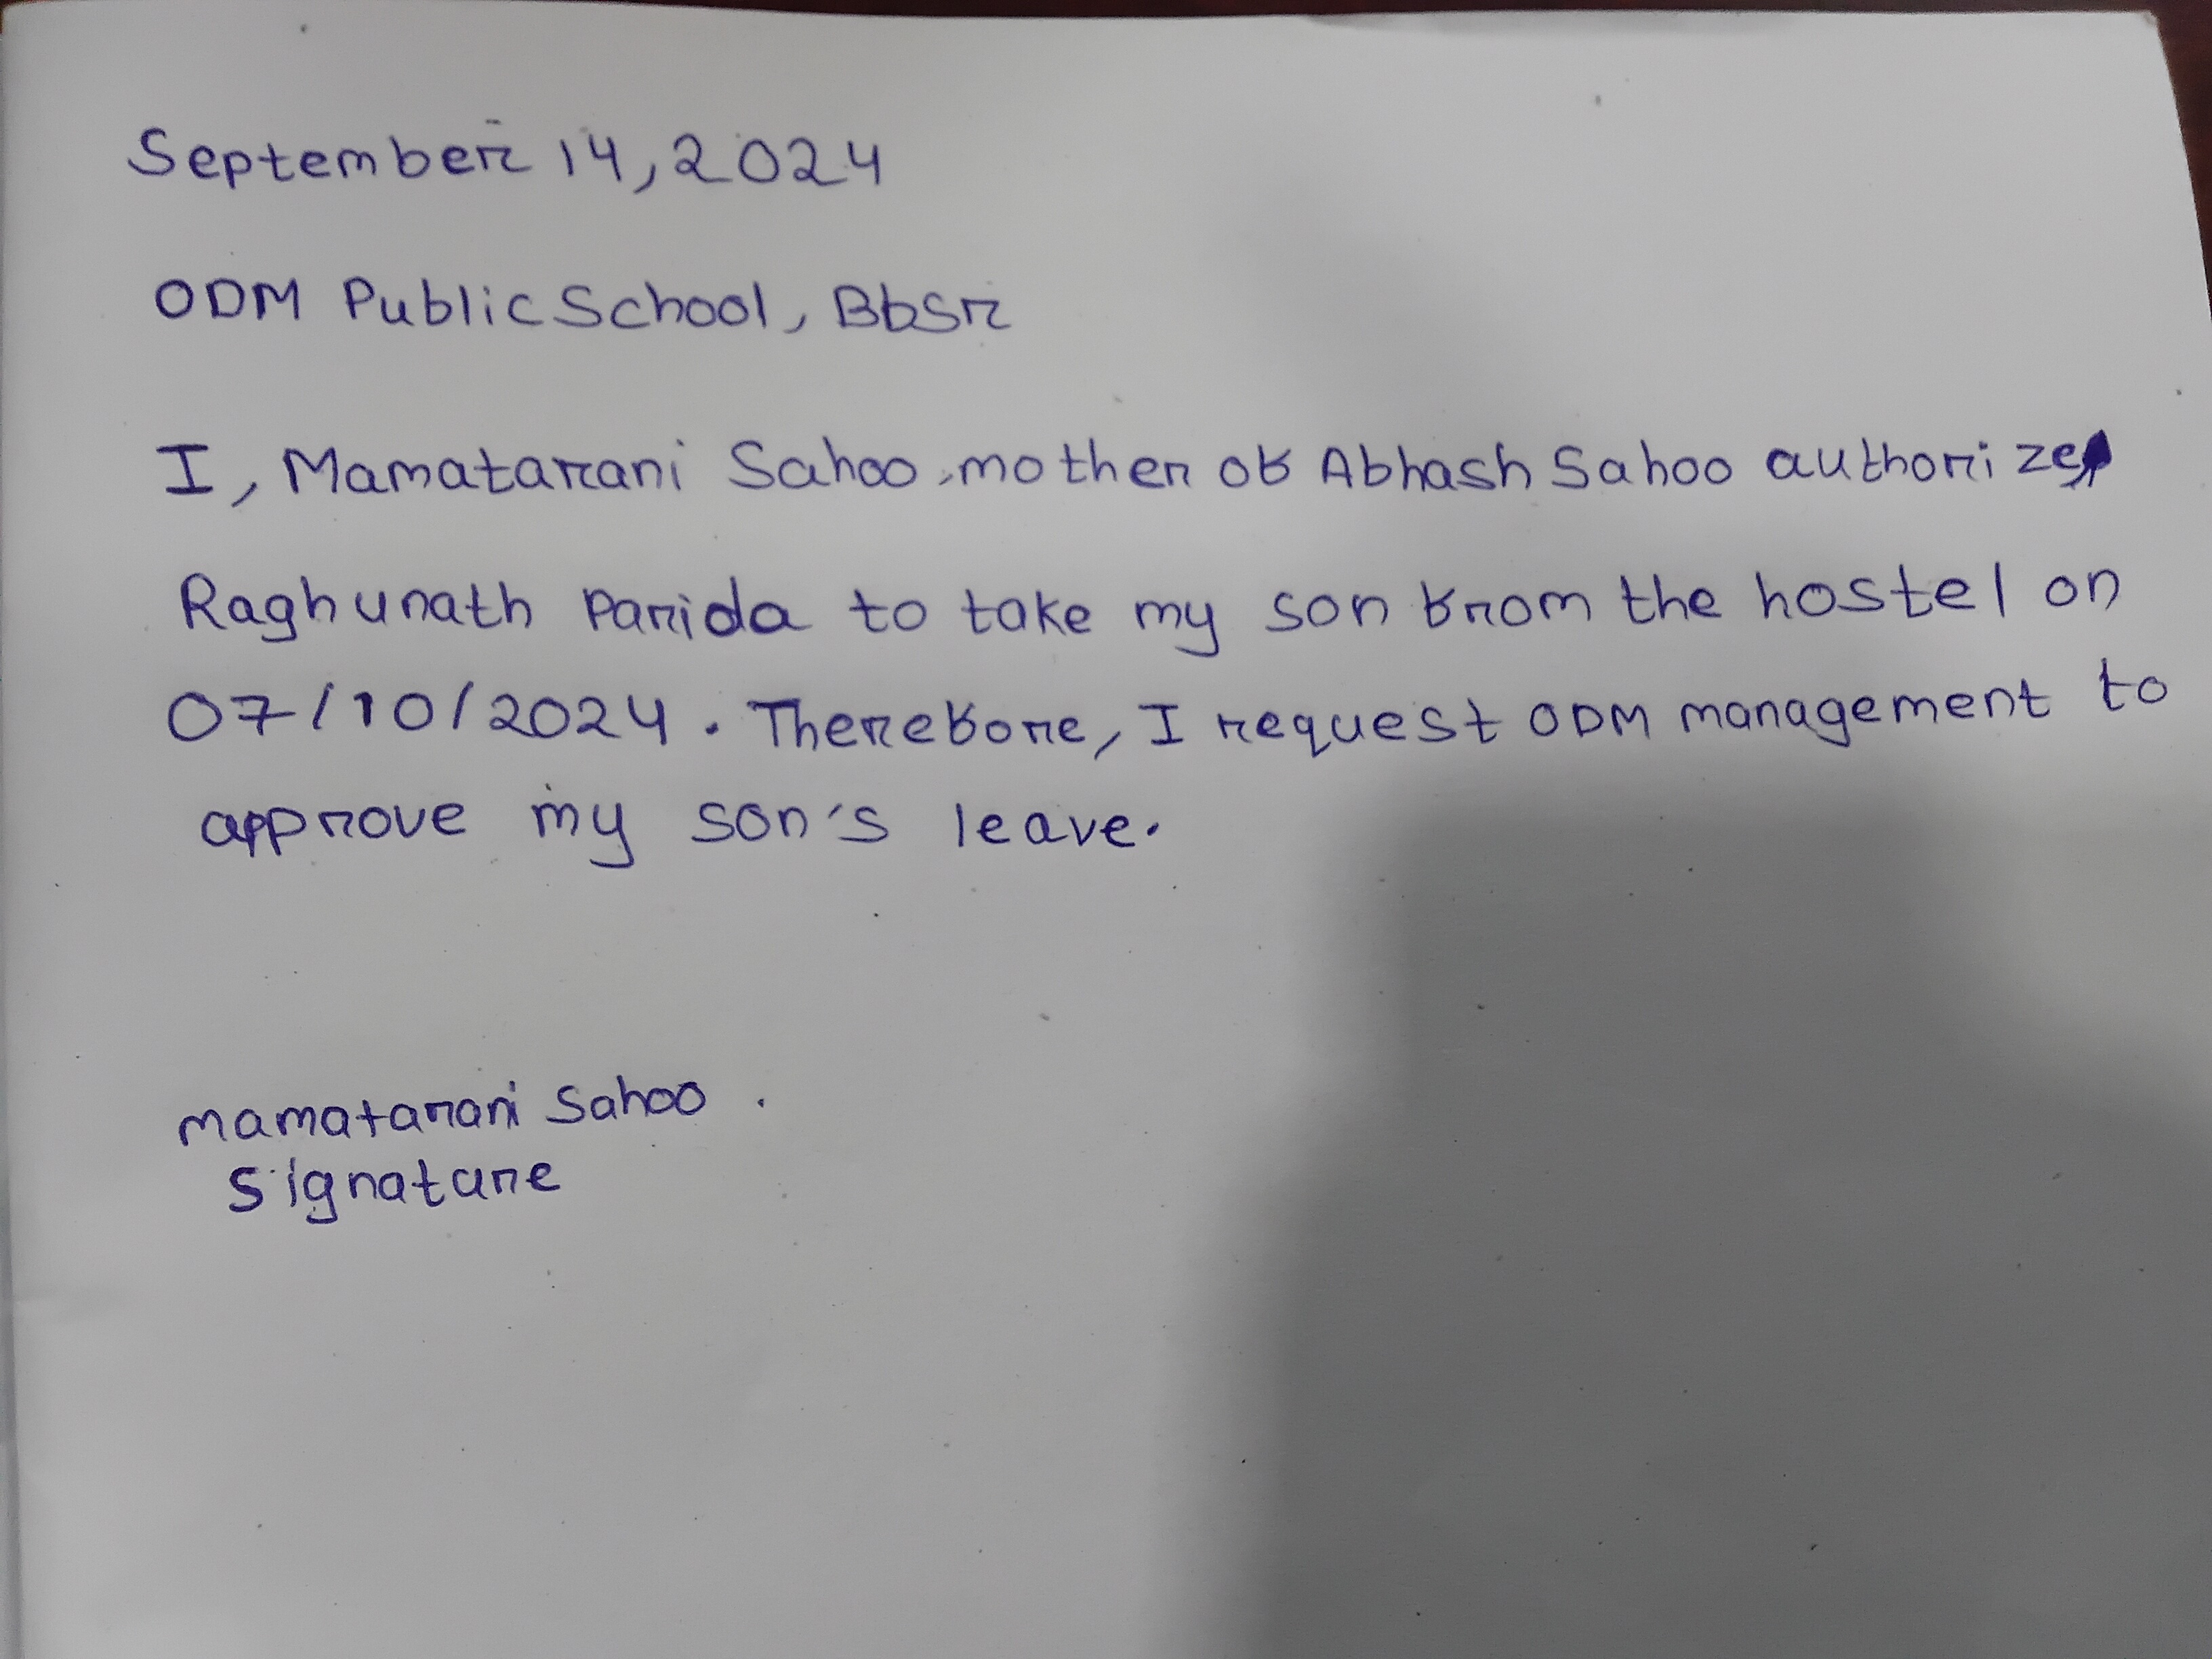 September 14, 2024
ODM Public School, Bbsr
I, Mamatarani Sahoo, mother of Abhash Sahoo authorize
Raghunath Parida to take my son from the hostel on
07/10/2024. Therefore, I request ODM management to
approve my son's leave.
mamatarani Sahoo.
Signature